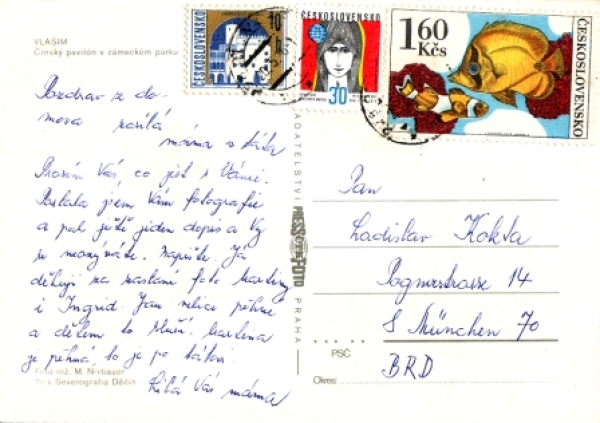 VLAŠIM
Čínský pavilón v zámeckém parku
Pozdrav z do-
mova posílá
máma a táta
Prosím Vás, co jest s Vámi.
Poslala jsem Vám fotografie
a pak ještě jeden dopis a Vy
se neozýváte. Napište. Já
děkuji za zaslané foto Martiny
i Ingrid. Jsou velice pěkné
a dětem to sluší. Martina
je pěkná, to je po tátovi.
Líbá Vás máma
Foto inž. M. Nirbauer
Tisk Severografia Děčín
ČESKOSLOVENSKO
10
ČESKOSLOVENSKO
30
1,60
Kčs
ČESKOSLOVENSKO
PRESSFOTO
PRAHA
Pan
Ladislav Kokta
14
8 München 70
PSČ
BRD
Okres: